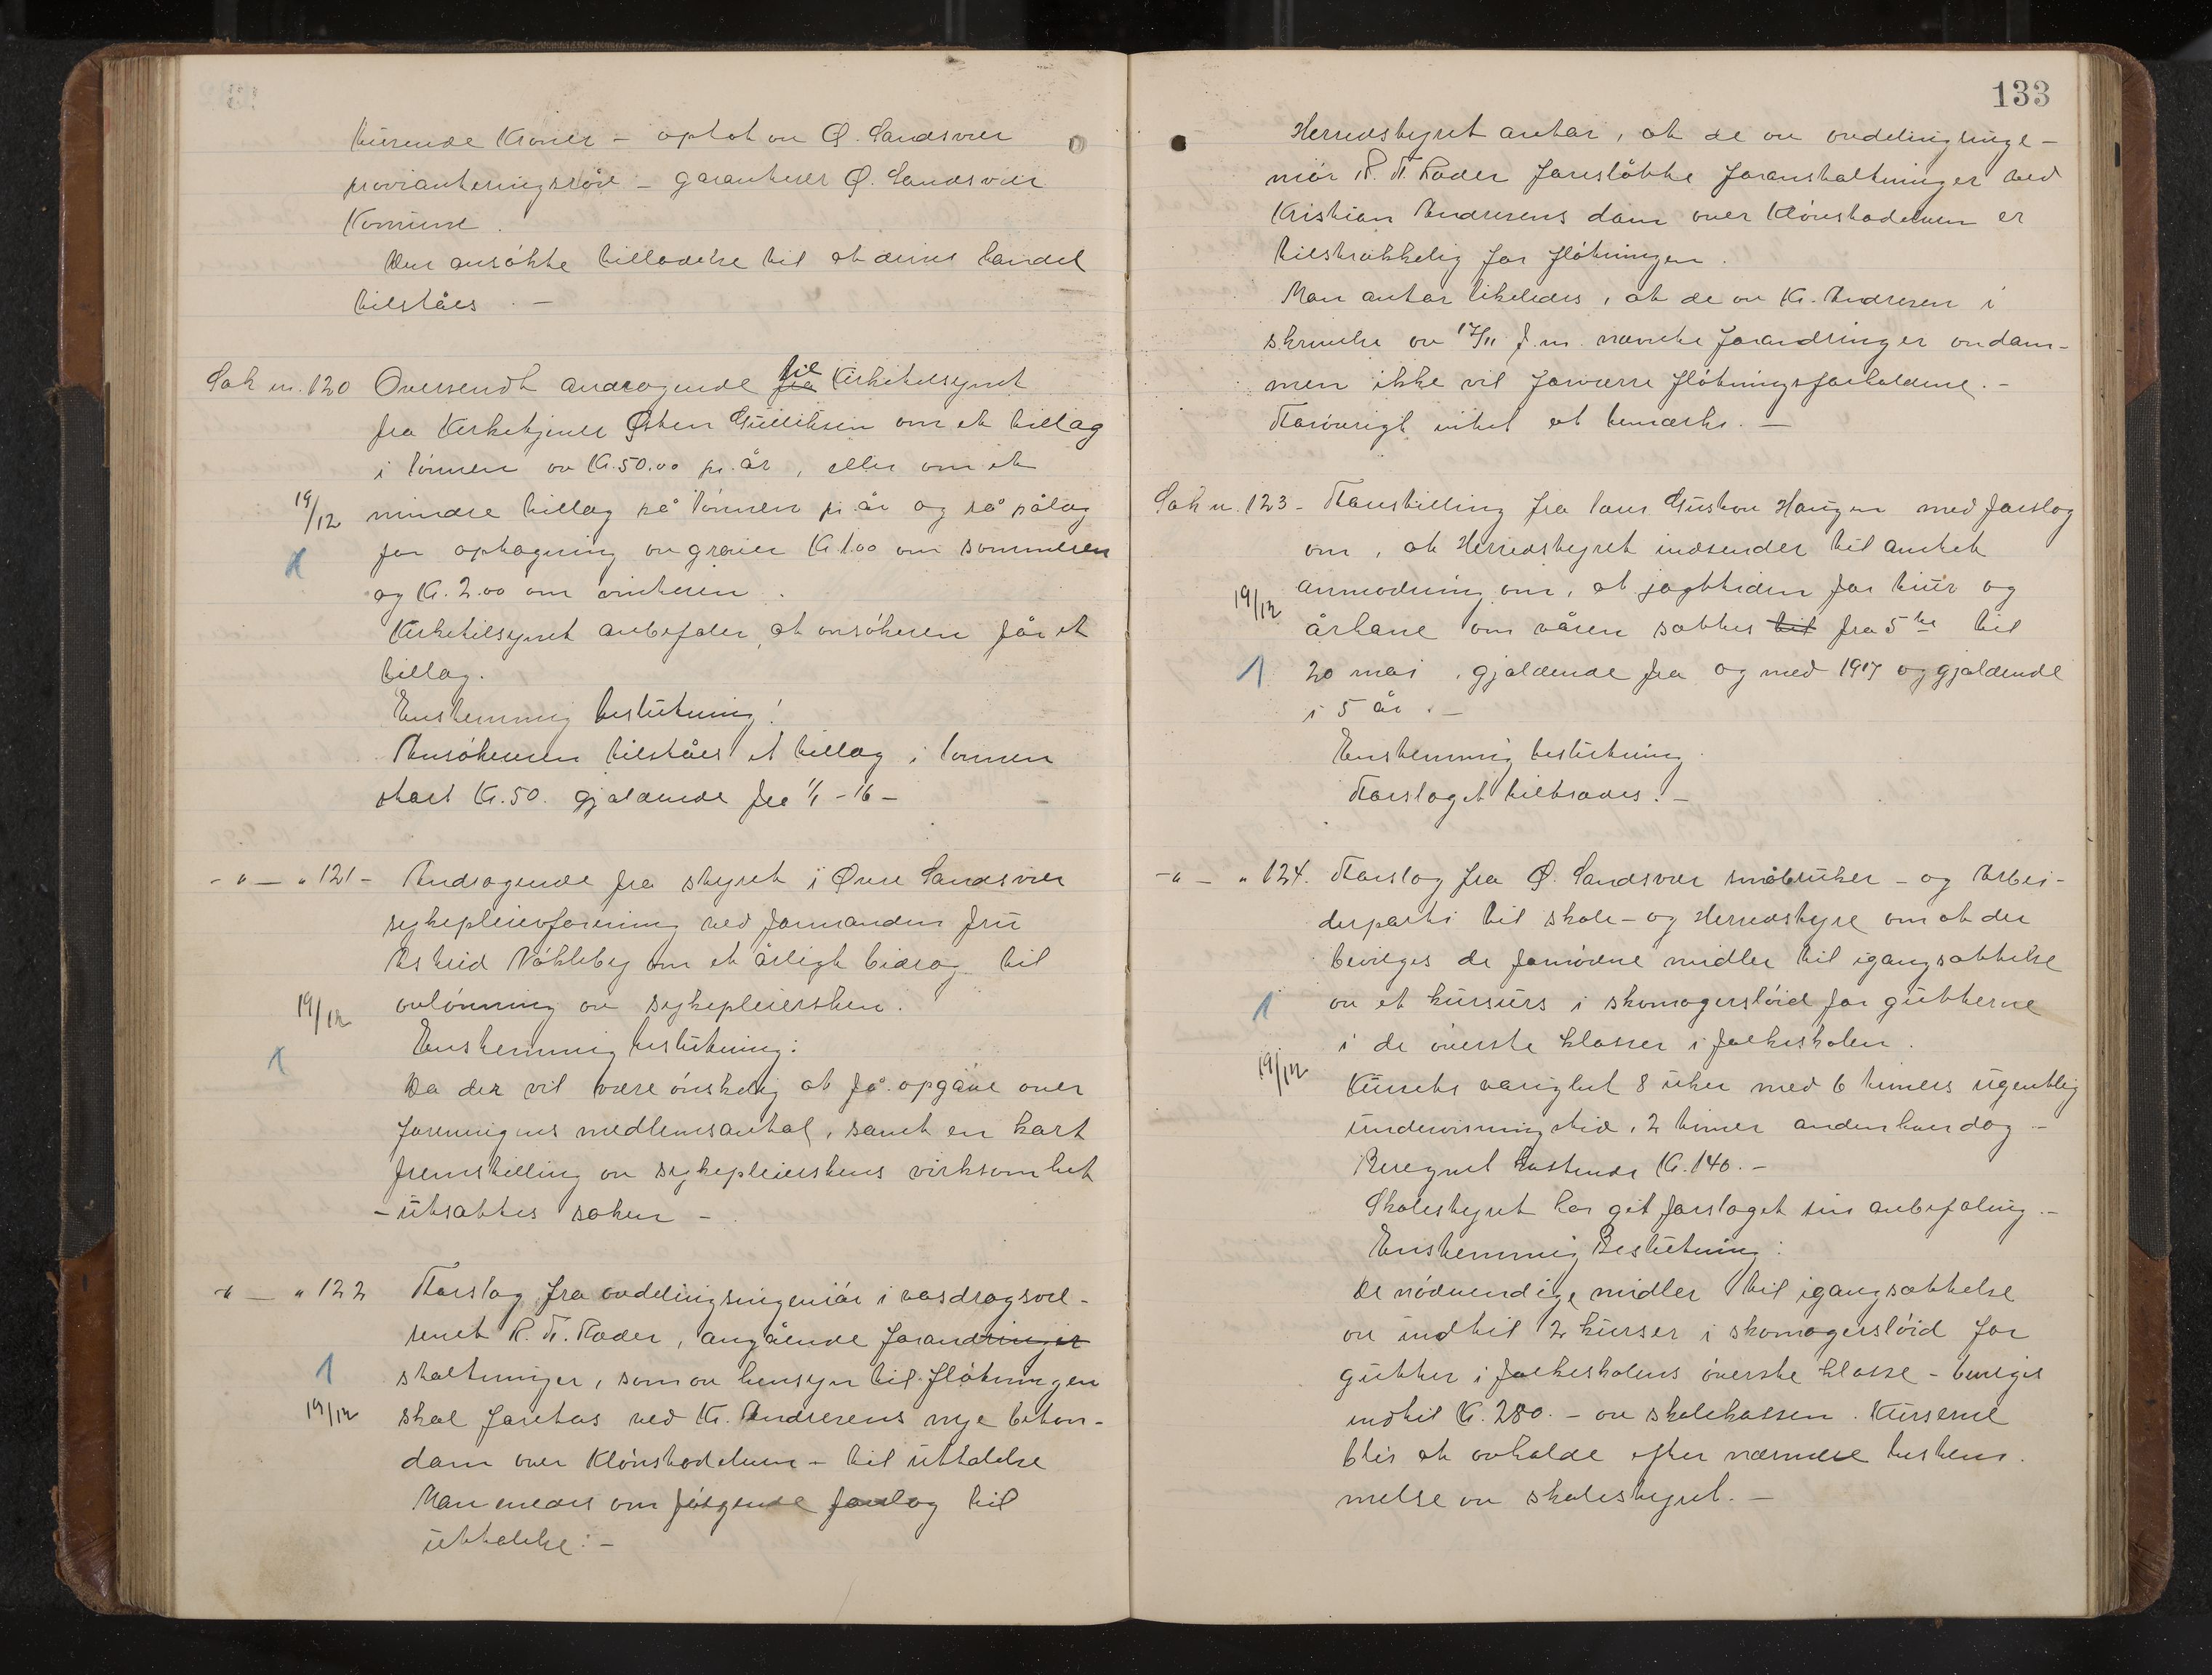 tusende Kroner – optat av Ø. Sandsvær
provianteringsråd – garanteres Ø. Sandsvær
Komune.
Den ansøkte tilladelse til at drive handel
tilståes. –
Sak nr. 120 Oversendt andragende fra til Kirketilsynet
fra Kirketjener Østen Gulliksen om et tillag
i lønnen av Kr. 50.00 pr. år, eller om et
19/12 mindre tillag på lønnen pr. år og så pålag
for optagning av graver Kr. 1.00 om sommeren
1
og Kr. 2.00 om vinteren.
Kirketilsynet anbefaler, at ansøkeren får et
tillag.
Enstemmig beslutning!
Ansøkeren tilståes et tillag i lønnen
stort Kr. 50. gjældende fra 1/1 – 16 –
– " – " 121 – Andragende fra styret i Øvre Sandsvær
sykepleieforening ved formanden fru
Astrid Nøkleby om et årligt bidrag til
19/12 avlønning av sykepleiersken.
Enstemmig beslutning:
1
Da det vil være ønskelig at få opgave over
foreningens medlemsantal, samt en kort
fremstilling av sykepleierskens virksomhet
– utsættes saken –
– " – " 122 Forslag fra avdelingsingeniør i vasdragsvæ-
senet R. F. Rader, angående forandringer
1 staltninger, som av hensyn til fløtningen
19/12 skal foretas ved Kr. Andresens nye beton-
dam over Klønstadelven – til uttalelse
Man enedes om følgende forslag til
uttalelse: –
133
Herredstyret antar, at de av avdelingsinge-
niør R. F. Rader foreslåtte foranstaltninger ved
Kristian Andresens dam over Klønstadelven er
tilstrækkelig for fløtningen.
Man antar likeledes, at de av Kr. Andresen i
skrivelse av 17/11 f.m. nævnte forandringer av dam-
men ikke vil forværre fløtningsforholdene. –
Forøvrigt intet at bemærke. –
Sak nr. 123 – Framstilling fra lens Gustav Haugen med forslag
om, at Herredstyret indsender til amtet
anmodning om, at jagttiden for tiur og
19/12
århane om våren sættes til fra 5te til
1 20 mai, gjældende fra og med 1917 og gjældende
i 5 år. –
Enstemmig beslutning
Forslaget tiltrædes. –
– " – " 124. Forslag fra Ø. Sandsvær småbruker – og Arbei-
derparti til skole – og Herredstyre om at der
bevilges de fornødne midler til igangsættelse
1 av et kursus i skomagersløid for gutterne
i de øverste klasser i folkeskolen.
19/12
Kursets varighet 8 uker med 6 timers ugentlig
undervisningstid, 2 timer andenhver dag –
Beregnet kostende Kr. 140. –
Skolestyret har git forslaget sin anbefaling. –
Enstemmig Beslutning:
De nødvendige midler til igangsættelse
av indtil 2 kurser i skomagersløid for
gutter i folkeskolens øverste klasse – bevilges
indtil Kr. 280. – av skolekassen. Kurserne
blir at avholde efter nærmere bestem-
melse av skolestyret. –